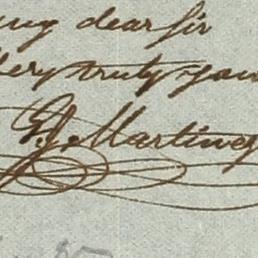 my dear sir
Very truly your
E. J. Martinez